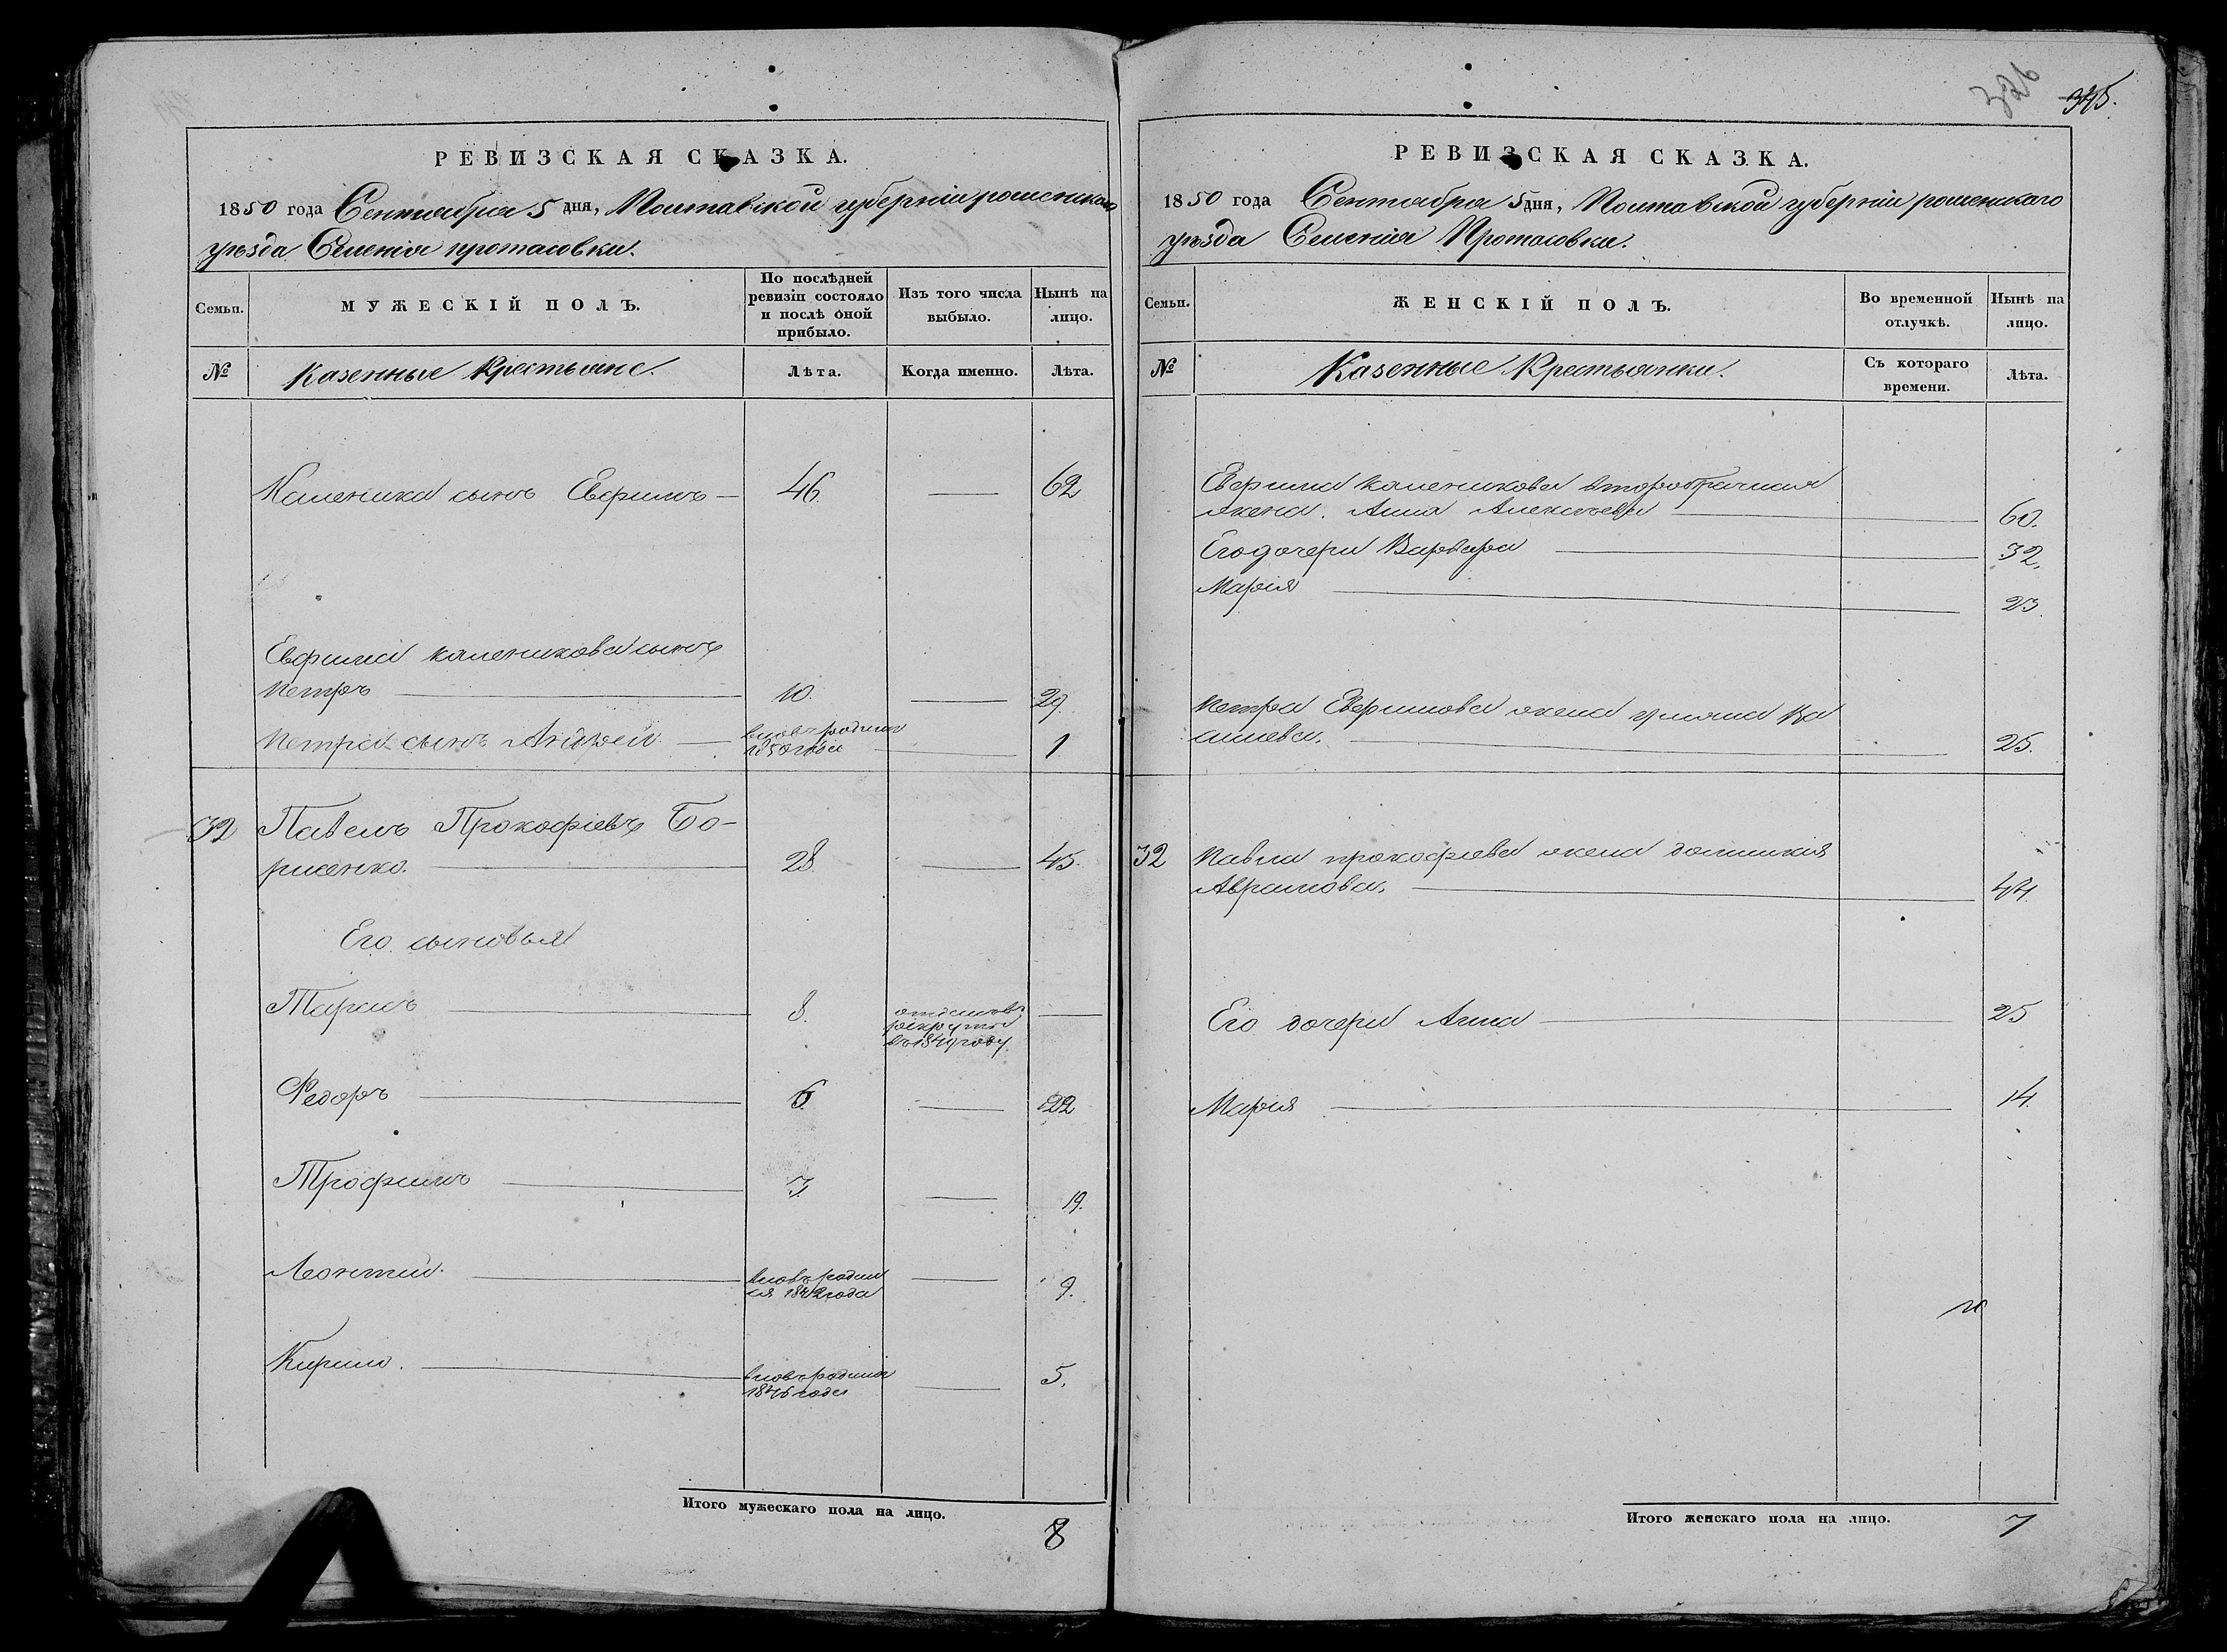 РЕВИЗСКАЯ СКАЗКА.
1850 года Сентября 5 дня, Полтавской губерніи роменскаго
уѣзда Селенія протасовки.
Семьи.
МУЖЕСКІЙ ПОЛЪ.
По послѣдней
ревизіи состояло
и послѣ оной
прибыло.
Изъ того числа
выбыло.
Нынѣ на
лицо.
№
Казенные Крестьяне.
Лѣта.
Когда именно.
Лѣта.
Каленика сынъ Евфимъ — 46. — 62
Евфима каленикова сынъ
Петръ — 10. — 29.
Петра сынъ Андрей — вновь родился
1850 года — 1
32 Павелъ Прокофіевъ Бо-
рисенко. — 28. — 45.
Его сыновья
Тарасъ — 8. отданъ въ
рекруты
въ 1849 году —
Федоръ — 6. — 22
Трофимъ — 3 — 19.
Леонтій. — вновь родил
ся 1842 года — 9.
Кирило. — вновь родился
1846 года — 5.
Итого мужескаго пола на лицо.
8
326
345.
РЕВИЗСКАЯ СКАЗКА.
1850 года Сентября 5 дня, Полтавской губерніи роменскаго
уѣзда Селенія Протасовки.
Семьи.
ЖЕНСКІЙ ПОЛЪ.
Во временной
отлучкѣ.
Нынѣ на
лицо.
№
Казенные Крестьянки.
Съ котораго
времени.
Лѣта.
Евфима каленикова второбрачная
жена. Анна Алексѣева — 60.
Его дочери Варвара — 32.
Марія — 23.
Петра Евфимова жена Ульяна
— 25.
32 Павла прокофіева жена домникія
Аврамова. — 44.
Его дочери Анна — 25
Марія — 14.
Итого женскаго пола на лицо.
7